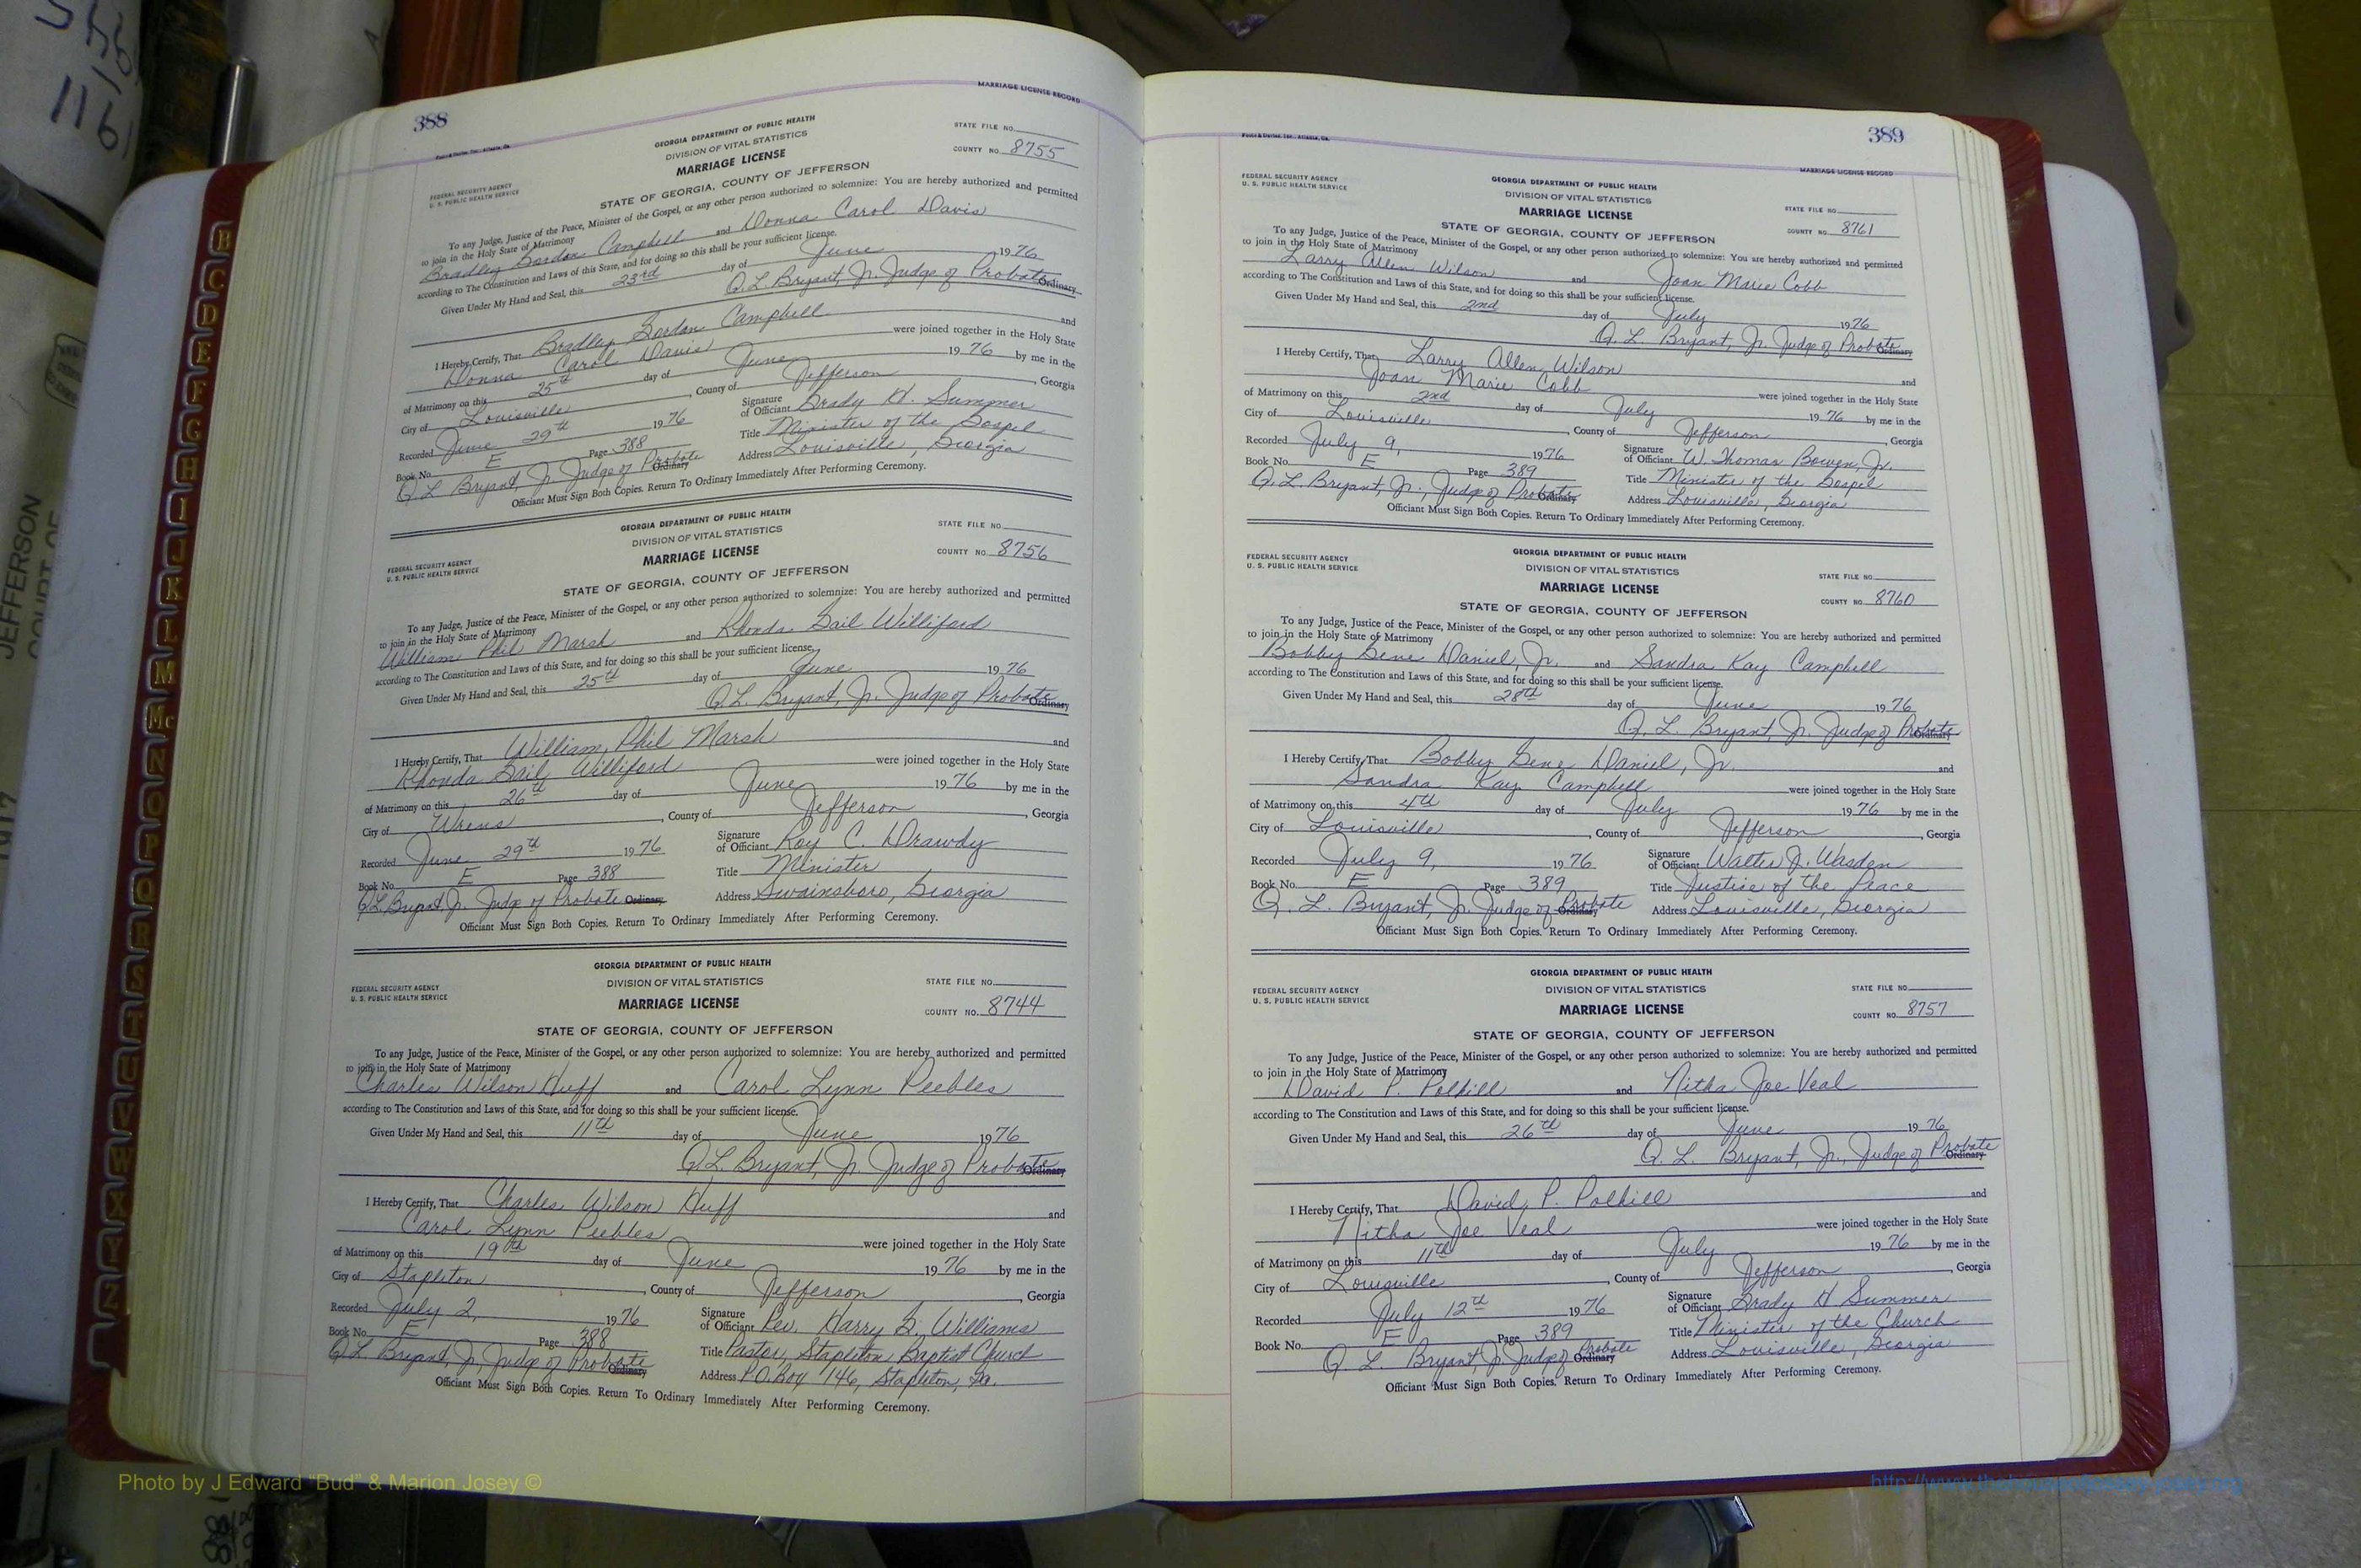 388
MARRIAGE LICENSE RECORD
GEORGIA DEPARTMENT OF PUBLIC HEALTH
DIVISION OF VITAL STATISTICS
MARRIAGE LICENSE
STATE OF GEORGIA, COUNTY OF JEFFERSON
STATE FILE NO.
COUNTY NO. 8755
FEDERAL SECURITY AGENCY
U. S. PUBLIC HEALTH SERVICE
To any Judge, Justice of the Peace, Minister of the Gospel, or any other person authorized to solemnize: You are hereby authorized and permitted
to join in the Holy State of Matrimony
Bradley Gordon Campbell and Donna Carol Davis
according to The Constitution and Laws of this State, and for doing so this shall be your sufficient license.
Given Under My Hand and Seal, this 23rd day of June 1976
Q. L. Bryant, Jr. Judge of Probate Ordinary
I Hereby Certify, That Bradley Gordon Campbell and
Donna Carol Davis were joined together in the Holy State
of Matrimony on this 25th day of June 1976 by me in the
City of Louisville, County of Jefferson, Georgia
Recorded June 29th 1976
Signature of Officiant Grady H. Summer
Book No. E Page 388
Title Minister of the Gospel
Q. L. Bryant, Jr. Judge of Probate Ordinary
Address Louisville, Georgia
Officiant Must Sign Both Copies. Return To Ordinary Immediately After Performing Ceremony.
GEORGIA DEPARTMENT OF PUBLIC HEALTH
DIVISION OF VITAL STATISTICS
MARRIAGE LICENSE
STATE OF GEORGIA, COUNTY OF JEFFERSON
STATE FILE NO.
COUNTY NO. 8756
FEDERAL SECURITY AGENCY
U. S. PUBLIC HEALTH SERVICE
To any Judge, Justice of the Peace, Minister of the Gospel, or any other person authorized to solemnize: You are hereby authorized and permitted
to join in the Holy State of Matrimony
William Phil Marsh and Rhonda Gail Williford
according to The Constitution and Laws of this State, and for doing so this shall be your sufficient license.
Given Under My Hand and Seal, this 25th day of June 1976
Q. L. Bryant, Jr. Judge of Probate Ordinary
I Hereby Certify, That William Phil Marsh and
Rhonda Gail Williford were joined together in the Holy State
of Matrimony on this 26th day of June 1976 by me in the
City of Wrens, County of Jefferson, Georgia
Recorded June 29th 1976
Signature of Officiant Roy C. Drawdy
Book No. E Page 388
Title Minister
Q. L. Bryant, Jr. Judge of Probate Ordinary
Address Swainsboro, Georgia
Officiant Must Sign Both Copies. Return To Ordinary Immediately After Performing Ceremony.
GEORGIA DEPARTMENT OF PUBLIC HEALTH
DIVISION OF VITAL STATISTICS
MARRIAGE LICENSE
STATE OF GEORGIA, COUNTY OF JEFFERSON
STATE FILE NO.
COUNTY NO. 8744
FEDERAL SECURITY AGENCY
U. S. PUBLIC HEALTH SERVICE
To any Judge, Justice of the Peace, Minister of the Gospel, or any other person authorized to solemnize: You are hereby authorized and permitted
to join in the Holy State of Matrimony
Charles Wilson Huff and Carol Lynn Peebles
according to The Constitution and Laws of this State, and for doing so this shall be your sufficient license.
Given Under My Hand and Seal, this 11th day of June 1976
Q. L. Bryant, Jr. Judge of Probate Ordinary
I Hereby Certify, That Charles Wilson Huff and
Carol Lynn Peebles were joined together in the Holy State
of Matrimony on this 19th day of June 1976 by me in the
City of Stapleton, County of Jefferson, Georgia
Recorded July 2, 1976
Signature of Officiant Rev. Harry G. Williams
Book No. E Page 388
Title Pastor, Stapleton Baptist Church
Q. L. Bryant, Jr., Judge of Probate Ordinary
Address P.O. Box 146, Stapleton, Ga.
Officiant Must Sign Both Copies. Return To Ordinary Immediately After Performing Ceremony.
389
MARRIAGE LICENSE RECORD
FEDERAL SECURITY AGENCY
U. S. PUBLIC HEALTH SERVICE
GEORGIA DEPARTMENT OF PUBLIC HEALTH
DIVISION OF VITAL STATISTICS
MARRIAGE LICENSE
STATE OF GEORGIA, COUNTY OF JEFFERSON
STATE FILE NO.
COUNTY NO. 8761
To any Judge, Justice of the Peace, Minister of the Gospel, or any other person authorized to solemnize: You are hereby authorized and permitted
to join in the Holy State of Matrimony
Larry Allen Wilson and Joan Marie Cobb
according to The Constitution and Laws of this State, and for doing so this shall be your sufficient license.
Given Under My Hand and Seal, this 2nd day of July 1976
Q. L. Bryant, Jr. Judge of Probate Ordinary
I Hereby Certify, That Larry Allen Wilson and
Joan Marie Cobb were joined together in the Holy State
of Matrimony on this 2nd day of July 1976 by me in the
City of Louisville, County of Jefferson, Georgia
Recorded July 9, 1976
Signature of Officiant W. Thomas Bowen, Jr.
Book No. E Page 389
Title Minister of the Gospel
Q. L. Bryant, Jr., Judge of Probate Ordinary
Address Louisville, Georgia
Officiant Must Sign Both Copies. Return To Ordinary Immediately After Performing Ceremony.
FEDERAL SECURITY AGENCY
U. S. PUBLIC HEALTH SERVICE
GEORGIA DEPARTMENT OF PUBLIC HEALTH
DIVISION OF VITAL STATISTICS
MARRIAGE LICENSE
STATE OF GEORGIA, COUNTY OF JEFFERSON
STATE FILE NO.
COUNTY NO. 8760
To any Judge, Justice of the Peace, Minister of the Gospel, or any other person authorized to solemnize: You are hereby authorized and permitted
to join in the Holy State of Matrimony
Bobby Gene Daniel, Jr. and Sandra Kay Campbell
according to The Constitution and Laws of this State, and for doing so this shall be your sufficient license.
Given Under My Hand and Seal, this 28th day of June 1976
Q. L. Bryant, Jr. Judge of Probate Ordinary
I Hereby Certify, That Bobby Gene Daniel, Jr. and
Sandra Kay Campbell were joined together in the Holy State
of Matrimony on this 4th day of July 1976 by me in the
City of Louisville, County of Jefferson, Georgia
Recorded July 9, 1976
Signature of Officiant Walter J. Wasden
Book No. E Page 389
Title Justice of the Peace
Q. L. Bryant, Jr. Judge of Probate Ordinary
Address Louisville, Georgia
Officiant Must Sign Both Copies. Return To Ordinary Immediately After Performing Ceremony.
FEDERAL SECURITY AGENCY
U. S. PUBLIC HEALTH SERVICE
GEORGIA DEPARTMENT OF PUBLIC HEALTH
DIVISION OF VITAL STATISTICS
MARRIAGE LICENSE
STATE OF GEORGIA, COUNTY OF JEFFERSON
STATE FILE NO.
COUNTY NO. 8757
To any Judge, Justice of the Peace, Minister of the Gospel, or any other person authorized to solemnize: You are hereby authorized and permitted
to join in the Holy State of Matrimony
David P. Polhill and Nitha Joe Veal
according to The Constitution and Laws of this State, and for doing so this shall be your sufficient license.
Given Under My Hand and Seal, this 26th day of June 1976
Q. L. Bryant, Jr., Judge of Probate Ordinary
I Hereby Certify, That David P. Polhill and
Nitha Joe Veal were joined together in the Holy State
of Matrimony on this 11th day of July 1976 by me in the
City of Louisville, County of Jefferson, Georgia
Recorded July 12th 1976
Signature of Officiant Grady H Summer
Book No. E Page 389
Title Minister of the Church
Q. L. Bryant, Jr. Judge of Probate Ordinary
Address Louisville, Georgia
Officiant Must Sign Both Copies. Return To Ordinary Immediately After Performing Ceremony.
B
C
D
E
F
G
H
I
J
K
L
M
Mc
N
O
P
Q
R
S
T
U
V
W
X
Y
Z
JEFFERSON
Photo by J Edward "Bud" & Marion Josey ©